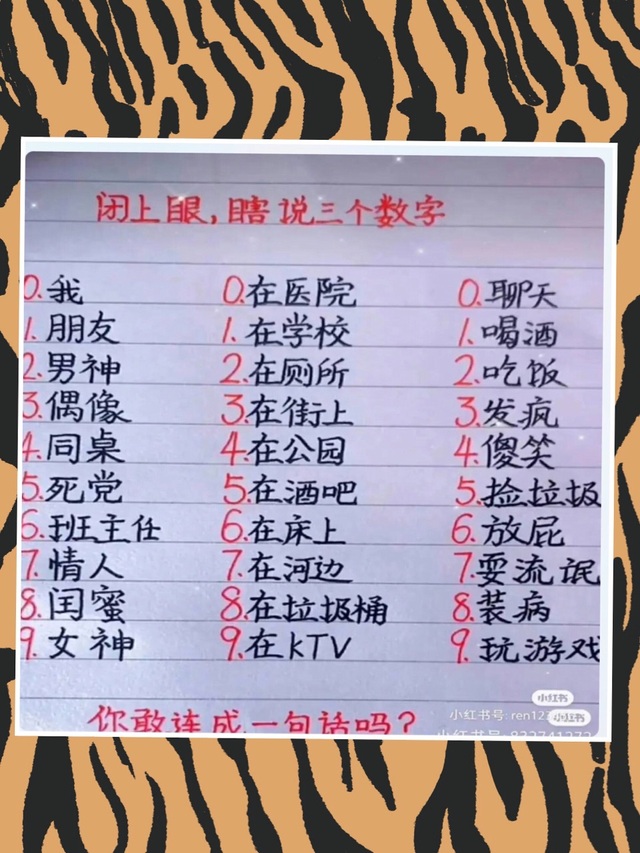 闭上眼,瞎说三个数字
0.我 0.在医院 0.聊天
1.朋友 1.在学校 1.喝酒
2.男神 2.在厕所 2.吃饭
3.偶像 3.在街上 3.发疯
4.同桌 4.在公园 4.傻笑
5.死党 5.在酒吧 5.捡垃圾
6.班主任 6.在床上 6.放屁
7.情人 7.在河边 7.耍流氓
8.闰蜜 8.在垃圾桶 8.装病
9.女神 9.在KTV 9.玩游戏
小红书
你敢连成一句话吗?
小红书号: ren12
小红书